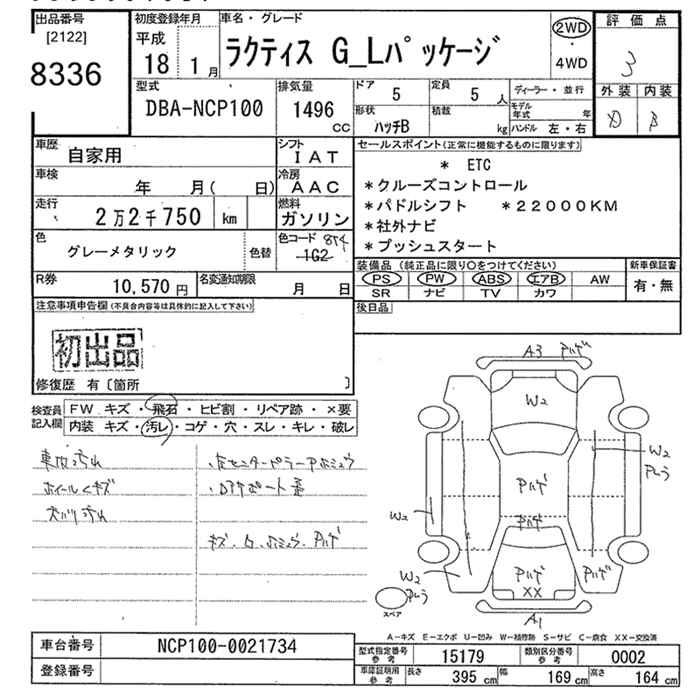 出品番号
[2122]
8336
初度登録年月
平成
18 1月
車名・グレード
ラクティス G_Lパッケージ
2WD
・
4WD
評価点
3
外装 内装
D B
型式
DBA-NCP100
排気量
1496
CC
ドア 5
定員 5人
形状 ハッチB
積載 kg
ディーラー・並行
モデル年式 年
ハンドル 左・右
車歴 自家用
シフト IAT
車検 年 月( 日)
冷房 AAC
走行 2万2千750 km
燃料 ガソリン
色 グレーメタリック
色替
色コード 874
1G2
R券 10,570円
名変通知期限 月 日
セールスポイント(正常に機能するものに限ります)
* ETC
*クルーズコントロール
*パドルシフト *22000KM
*社外ナビ
*プッシュスタート
装備品(純正品に限り○をつけてください)
PS PW ABS エアB AW
SR ナビ TV カワ
新車保証書
有・無
後日品
注意事項申告欄(不具合内容等は具体的に記入して下さい)
初出品
修復歴 有〔箇所 〕
検査員記入欄
FW キズ・飛石・ヒビ割・リペア跡・×要
内装 キズ・汚レ・コゲ・穴・スレ・キレ・破レ
車内汚れ
ホイールキズ
A3
W2
W2
W2
W2
XX
A1
スペア
A-キズ E-エクボ U-凹み W-補修跡 S-サビ C-腐食 XX-交換済
車台番号 NCP100-0021734
登録番号
型式指定番号 参考 15179
類別区分番号 参考 0002
車庫証明用 参考 長さ 395cm 幅 169cm 高さ 164cm